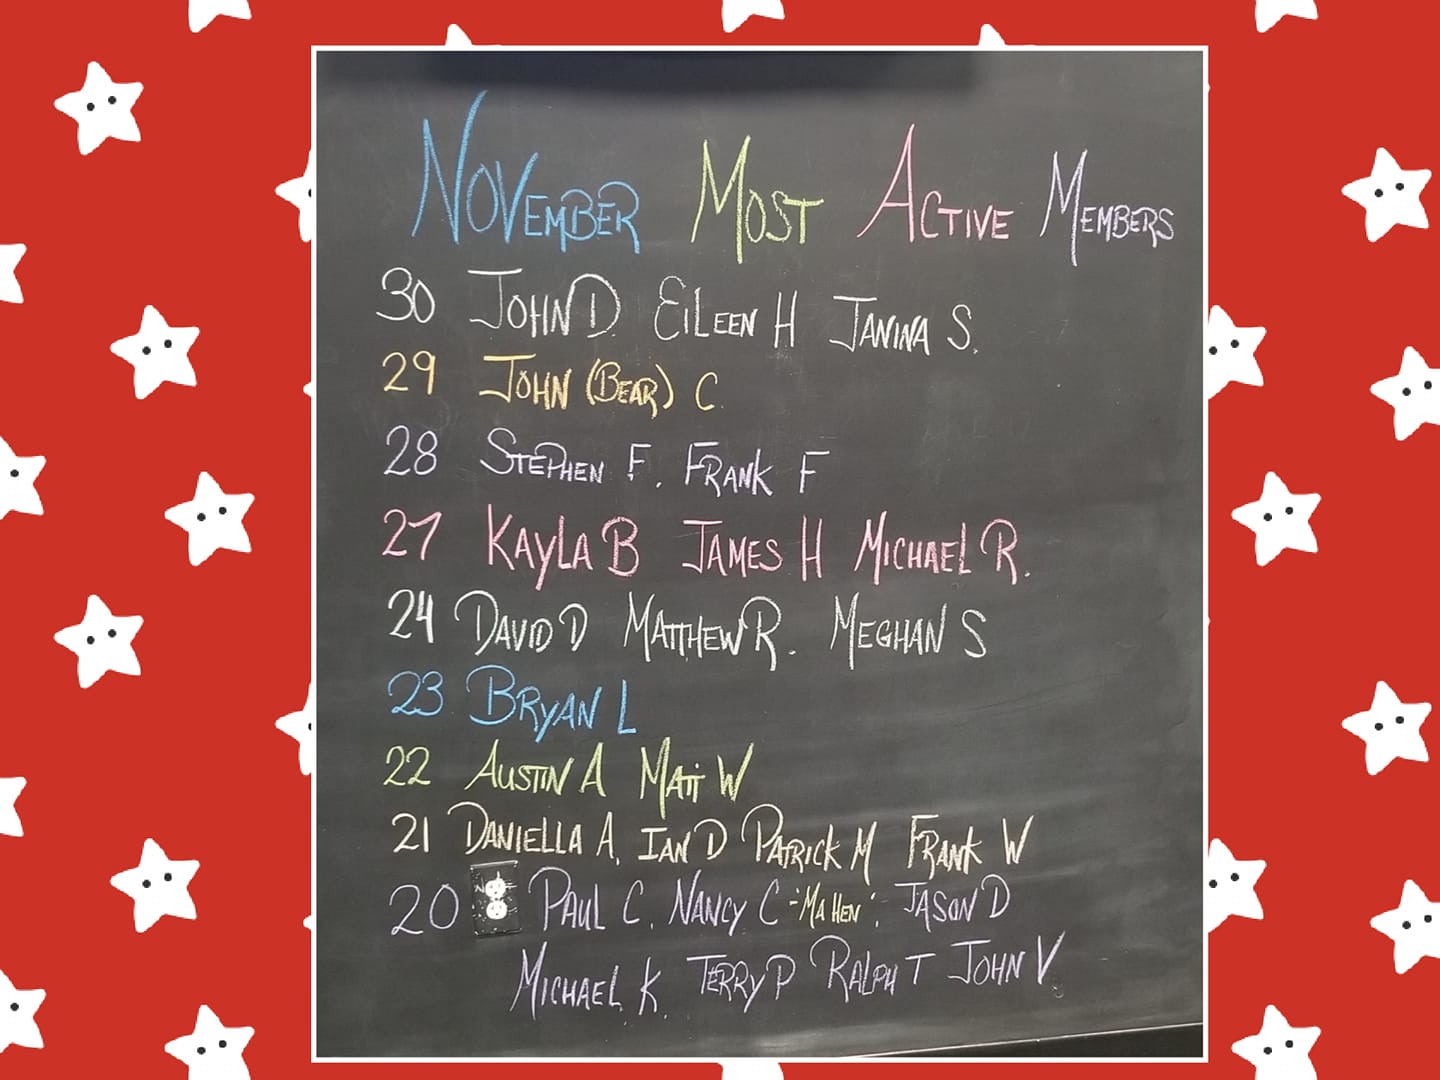 NOVEMBER MOST ACTIVE MEMBERS
30 JOHN D. EILEEN H JANINA S.
29 JOHN (BEAR) C
28 STEPHEN F. FRANK F
27 KAYLA B JAMES H MICHAEL R.
24 DAVID D MATTHEW R. MEGHAN S
23 BRYAN L
22 AUSTIN A MATT W
21 DANIELLA A. IAN D PATRICK M FRANK W
20 PAUL C. NANCY C "MA HEN". JASON D
MICHAEL K. TERRY P RALPH T JOHN V.